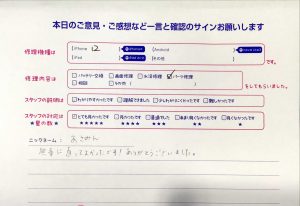 本日のご意見・ご感想など一言と確認のサインお願いします
修理機種は
iPhone 12
Android
iPad
その他
です。
修理内容は
バッテリー交換 画面修理 水没修理 パーツ修理
相談 その他
をしてもらいました。
スタッフの説明は
わかりやすかったです 理解できました 少しわかりにくかったです 難しかったです
スタッフの対応は
★星の数★
とても良かったです 良かったです 普通でした あまり良くなかったです 良くなかったです
★★★★★ ★★★★ ★★★ ★★ ★
ニックネーム:
無事に直ってよかったです!ありがとうございました。